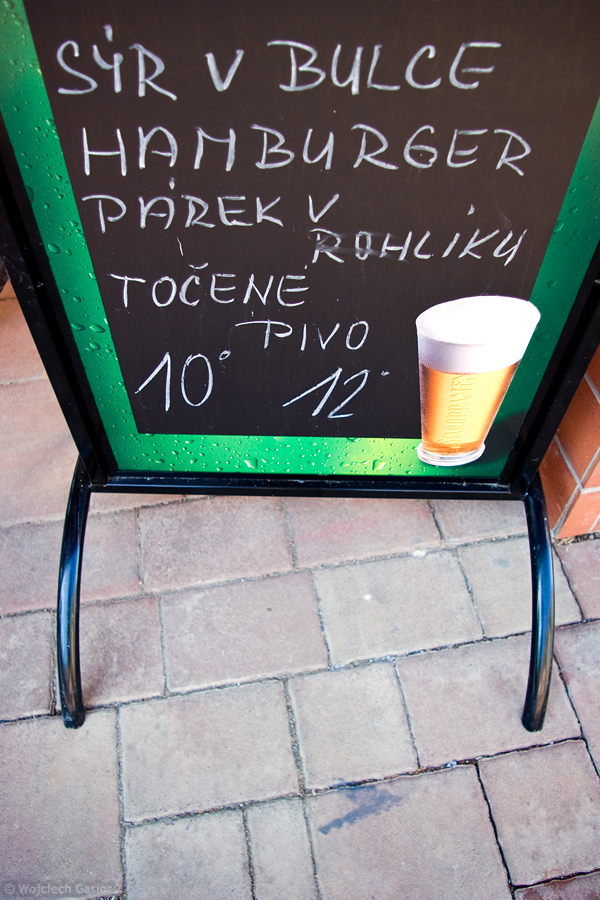 SÝR V BULCE
HAMBURGER
PÁREK V
ROHLÍKU
TOČENÉ
PIVO
10° 12°
© Wojciech Gasior